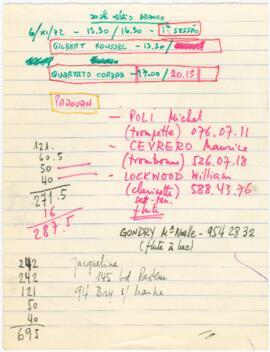 JOSÉ MÁRIO BRANCO
6/XI/72 - 13.30 / 16.30 - 1ª SESSÃO
GILBERT ROUSSEL - 13.30 /
QUARTETO CORDAS → 17.00 / 20.15
PADOUAN
- POLI Michel
(trompette) 076.07.11
- CEVRERO Maurice
(trombone) 526.07.18
- LOCKWOOD William
(clarinette) 588.43.76
flûte
121.
60.5
50
40
271.5
16
287.5
GONDRY Mse Noelle - 954 28 32
(flûte à bec)
242
242
121
50
40
695
Jacqueline
145 bd Pasteur
94 Bry s/ Marne